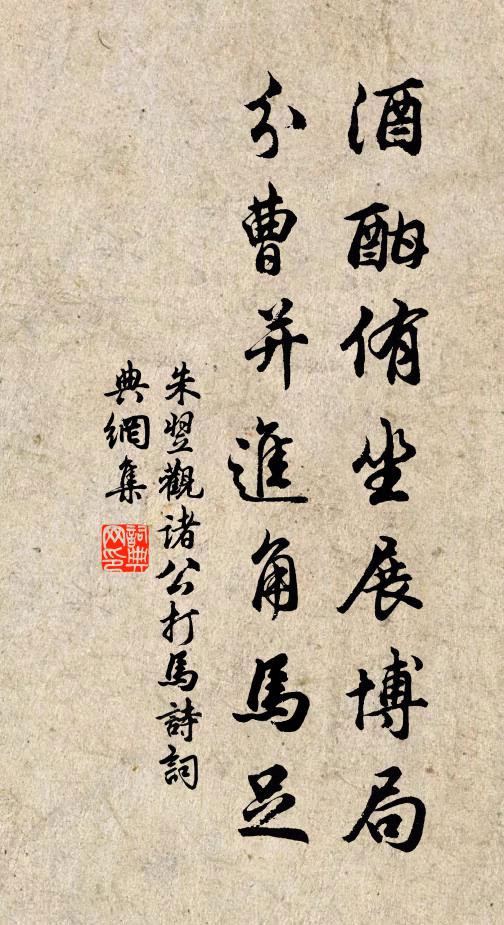 酒酣侑坐展博局
分曹并進角馬足
朱翌觀諸公打馬詩詞
典網集
詞典
网印